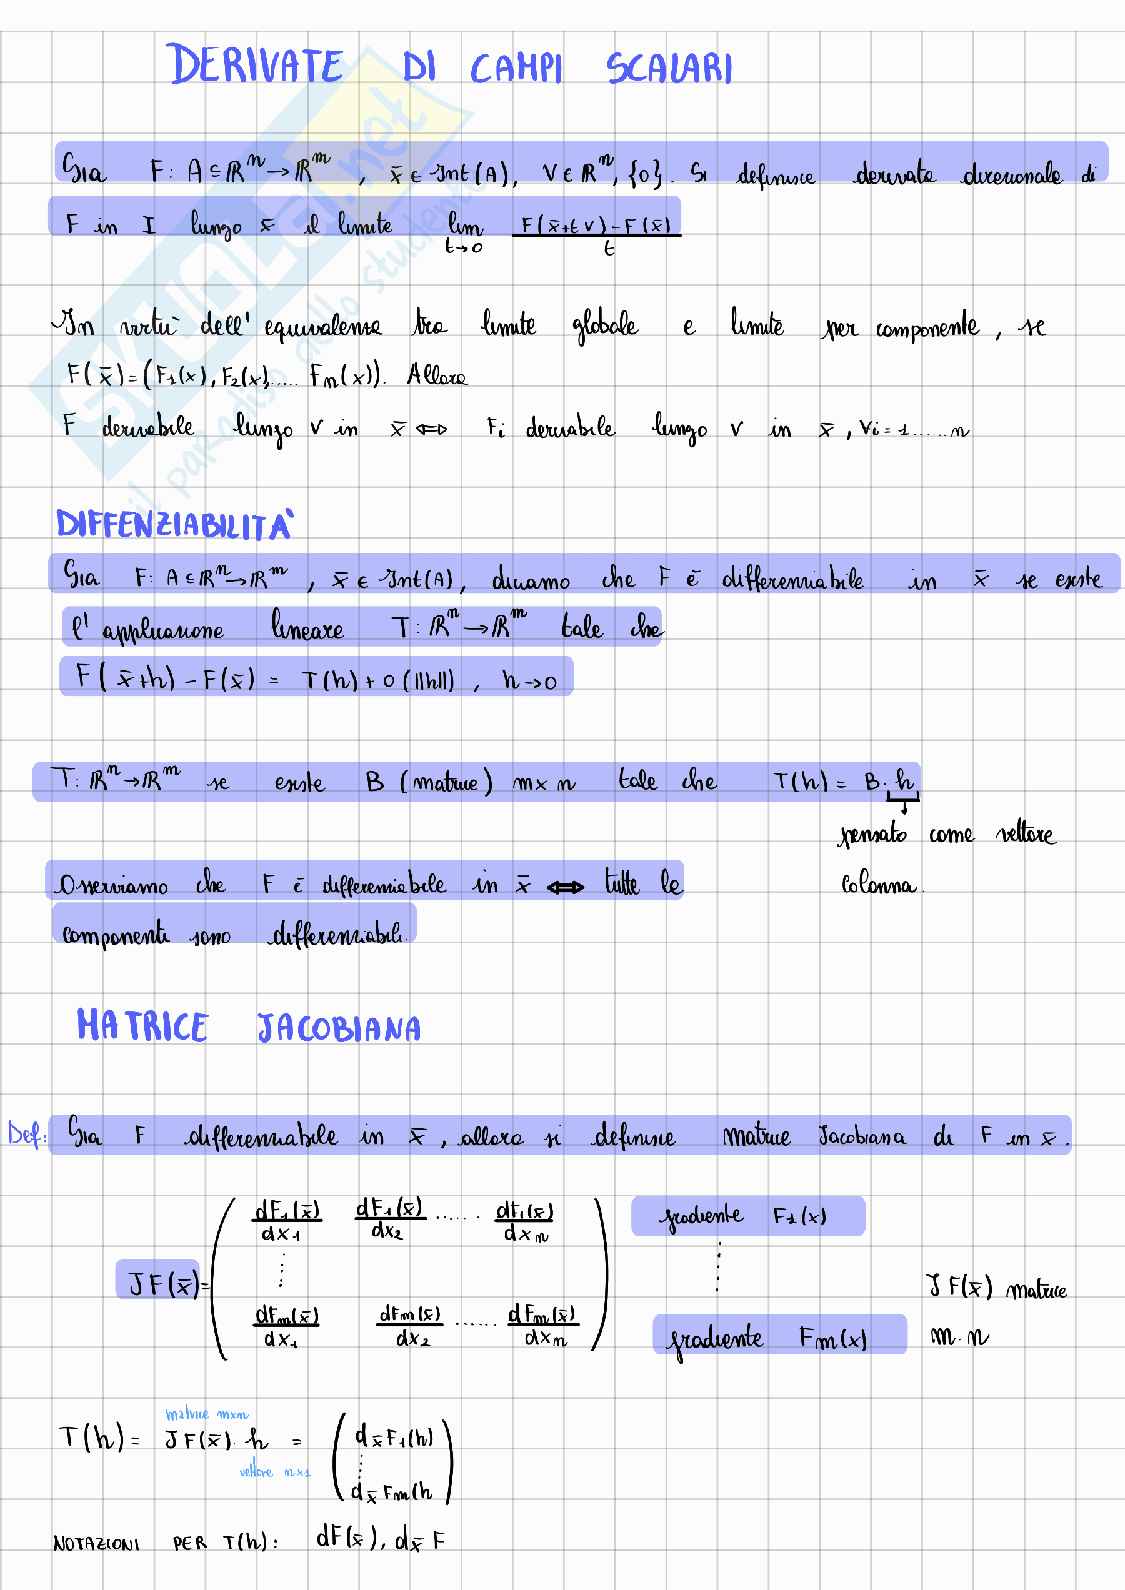 DERIVATE DI CAMPI SCALARI
Sia F: A ⊆ ℝⁿ → ℝᵐ, x̄ ∈ Int(A), V ∈ ℝⁿ, {0}. Si definisce derivata direzionale di
F in I lungo x̄ il limite lim t→0 F(x̄+tv)-F(x̄) / t
In virtù dell'equivalenza tra limite globale e limite per componente, se
F(x̄)=(F₁(x), F₂(x),.... Fm(x)). Allora
F derivabile lungo v in x̄ ⇔ Fi derivabile lungo v in x̄, ∀i=1.....n
DIFFENZIABILITA'
Sia F: A ⊆ ℝⁿ → ℝᵐ, x̄ ∈ Int(A), diciamo che F è differenziabile in x̄ se esiste
l'applicazione lineare T: ℝⁿ → ℝᵐ tale che
F(x̄+h) - F(x̄) = T(h) + o(||h||), h→0
T: ℝⁿ → ℝᵐ se esiste B (matrice) m×n tale che T(h) = B·h
pensato come vettore
colonna.
Osserviamo che F è differenziabile in x̄ ⇔ tutte le
componenti sono differenziabili.
MATRICE JACOBIANA
Def: Sia F differenziabile in x̄, allora si definisce matrice Jacobiana di F in x̄.
dF₁(x̄)/dx₁ dF₁(x̄)/dx₂ ...... dF₁(x̄)/dxn gradiente F₁(x)
JF(x̄)= JF(x̄) matrice
dFm(x̄)/dx₁ dFm(x̄)/dx₂ ...... dFm(x̄)/dxn gradiente Fm(x) m·n
matrice m×n
T(h) = JF(x̄)·h = (dx̄F₁(h) ..... dx̄Fm(h)
vettore n×1
NOTAZIONI PER T(h): dF(x̄), dx̄F
SKUOLA.net
il paradiso dello studente